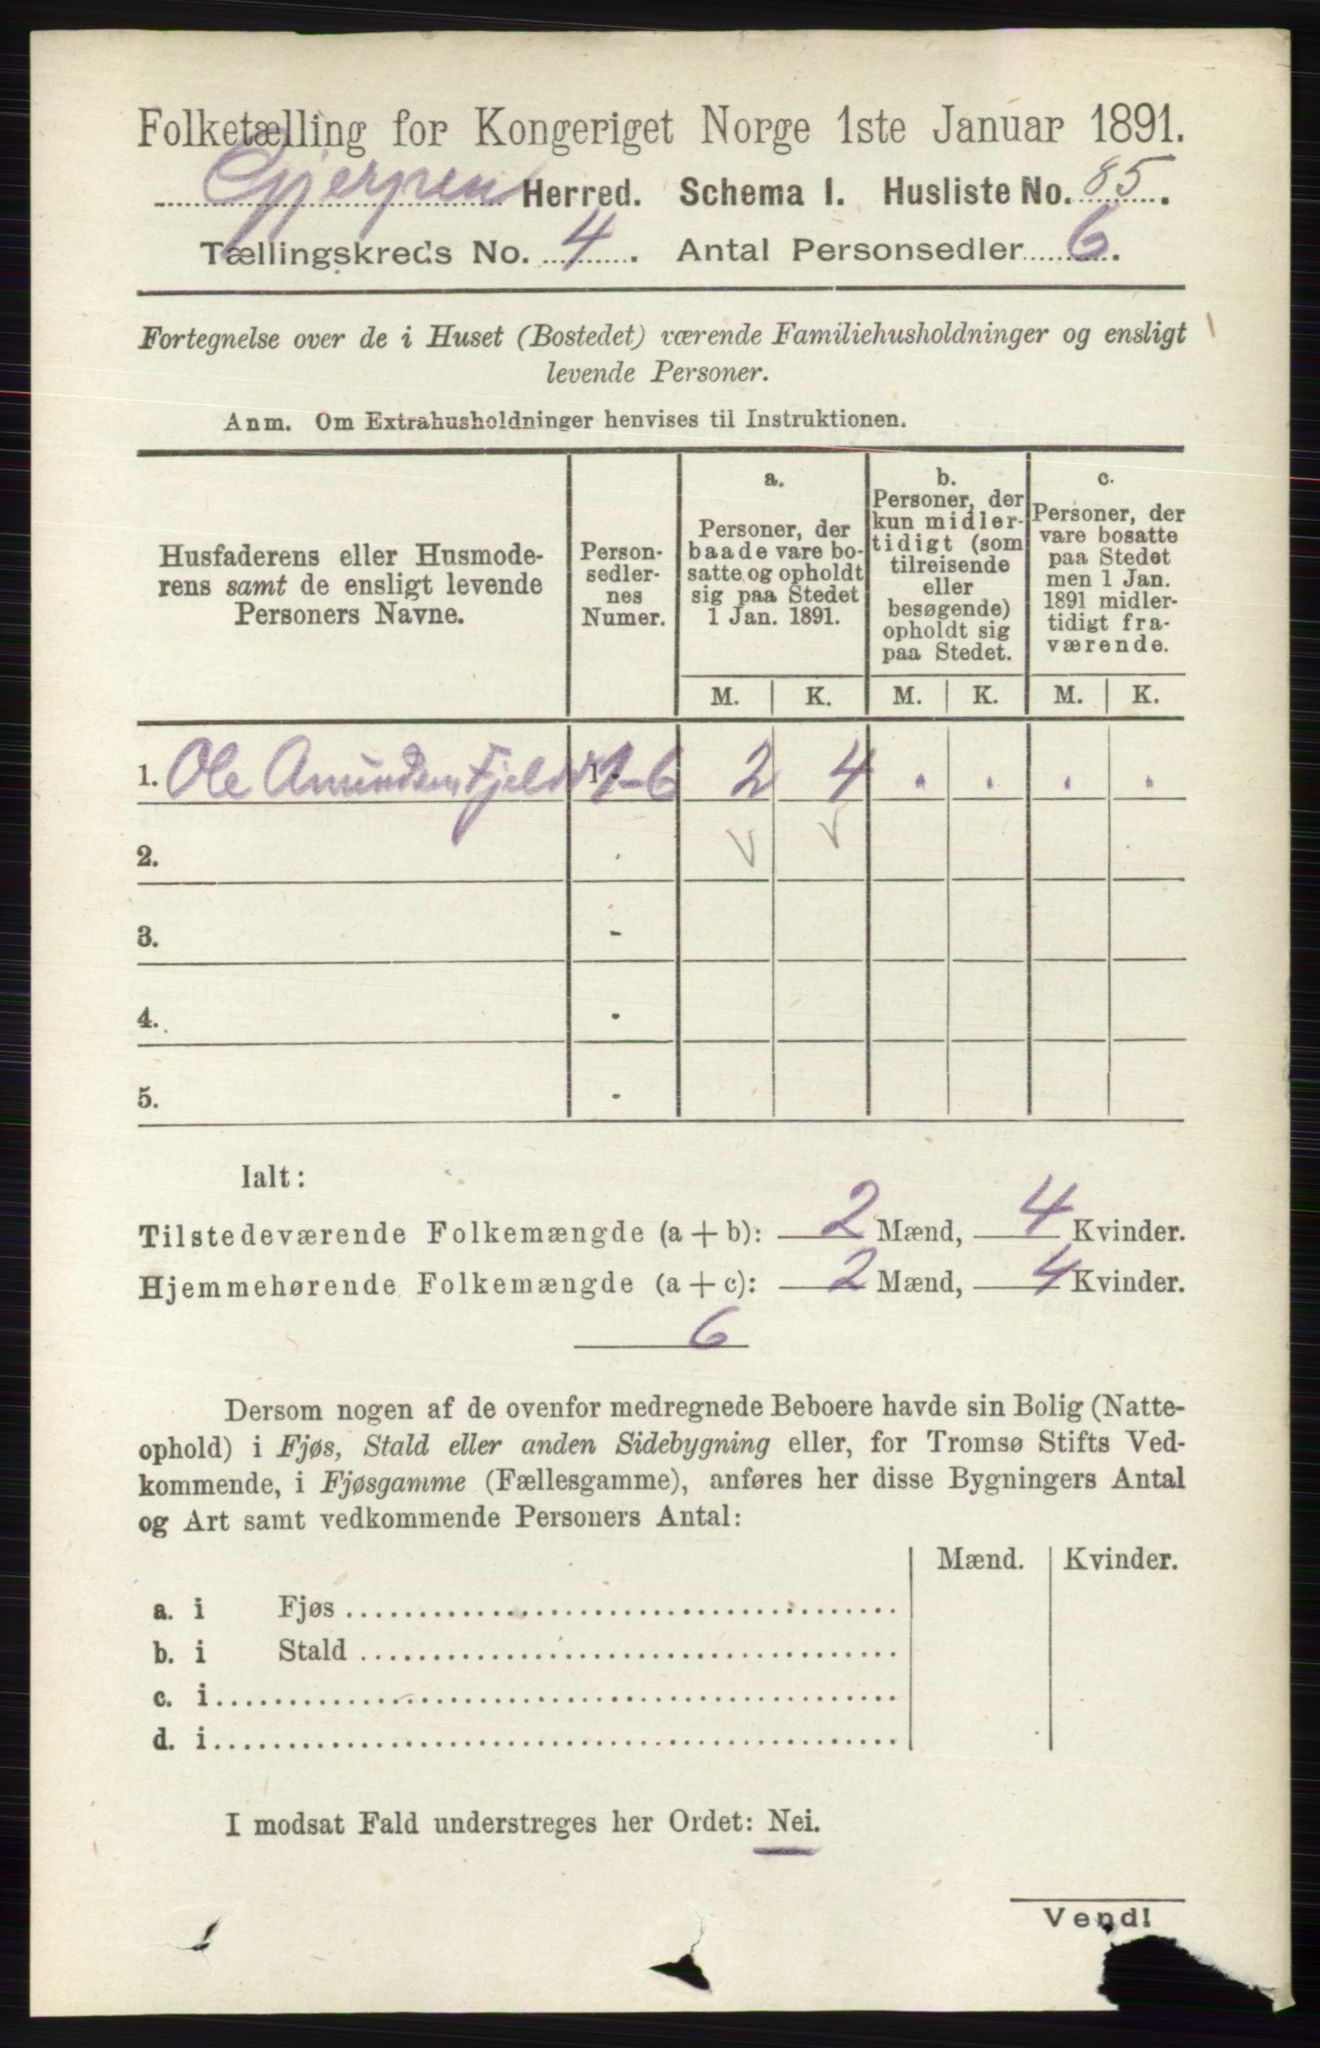 Folketælling for Kongeriget Norge 1ste Januar 1891.
Gjerpen Herred. Schema I. Husliste No. 85.
Tællingskreds No. 4. Antal Personsedler 6.
Fortegnelse over de i Huset (Bostedet) værende Familiehusholdninger og ensligt
levende Personer.
Anm. Om Extrahusholdninger henvises til Instruktionen.
Husfaderens eller Husmode-
rens samt de ensligt levende
Personers Navne.
Person-
sedler-
nes
Numer.
a.
Personer, der
baade vare bo-
satte og opholdt
sig paa Stedet
1 Jan. 1891.
b.
Personer, der
kun midler-
tidigt (som
tilreisende
eller
besøgende)
opholdt sig
paa Stedet.
c.
Personer, der
vare bosatte
paa Stedet
men 1 Jan.
1891 midler-
tidigt fra-
værende.
M. K. M. K. M. K.
1. Ole Amundsen Fjeld 1-6 2 4 . . . .
2.
3. -
4. -
5. -
Ialt:
Tilstedeværende Folkemængde (a + b): 2 Mænd, 4 Kvinder.
Hjemmehørende Folkemængde (a + c): 2 Mænd, 4 Kvinder.
6
Dersom nogen af de ovenfor medregnede Beboere havde sin Bolig (Natte-
ophold) i Fjøs, Stald eller anden Sidebygning eller, for Tromsø Stifts Ved-
kommende, i Fjøsgamme (Fællesgamme), anføres her disse Bygningers Antal
og Art samt vedkommende Personers Antal:
Mænd. Kvinder.
a. i Fjøs
b. i Stald
c. i
d. i
I modsat Fald understreges her Ordet: Nei.
Vend!